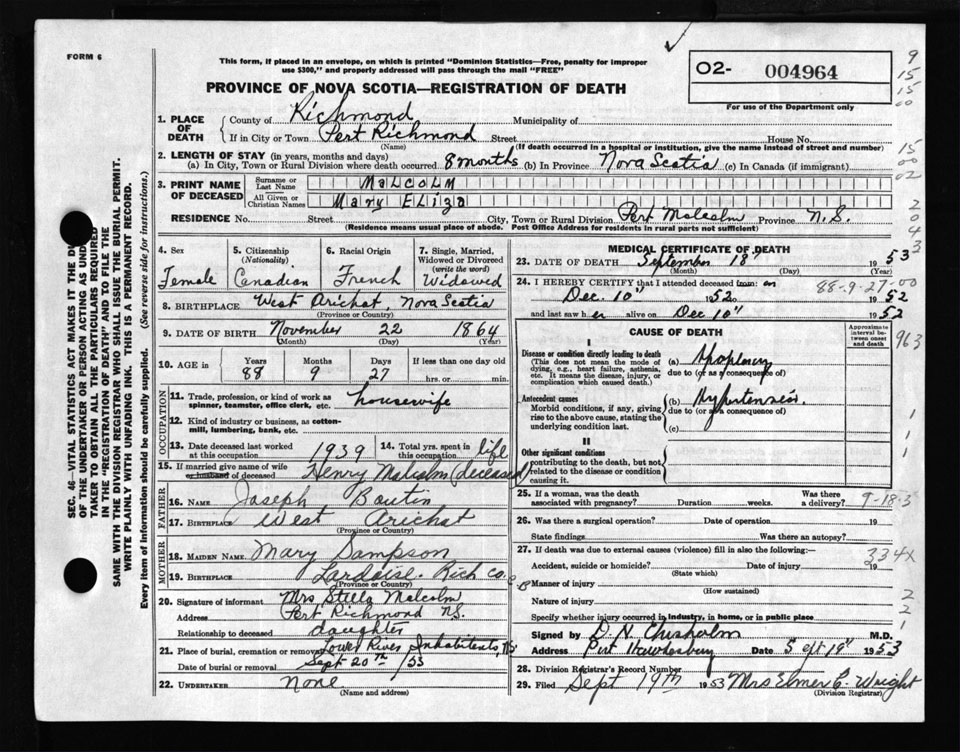 FORM 6
This form, if placed in an envelope, on which is printed "Dominion Statistics—Free, penalty for improper
use $300," and properly addressed will pass through the mail "FREE"
O2- 004964
For use of the Department only
PROVINCE OF NOVA SCOTIA—REGISTRATION OF DEATH
1. PLACE OF DEATH
County of Richmond Municipality of
If in City or Town Port Richmond Street House No.
(Name) (If death occurred in a hospital or institution, give the name instead of street and number)
2. LENGTH OF STAY (in years, months and days)
(a) In City, Town or Rural Division where death occurred 8 months (b) In Province Nova Scotia (c) In Canada (if immigrant)
3. PRINT NAME OF DECEASED
Surname or Last Name MALCOLM
All Given or Christian Names Mary ELiza
RESIDENCE No. Street City, Town or Rural Division Port Malcolm Province N.S.
(Residence means usual place of abode. Post Office Address for residents in rural parts not sufficient)
4. Sex Female
5. Citizenship (Nationality) Canadian
6. Racial Origin French
7. Single, Married, Widowed or Divorced (write the word) Widowed
8. BIRTHPLACE West Arichat, Nova Scotia
(Province or Country)
9. DATE OF BIRTH November 22 1864
(Month) (Day) (Year)
10. AGE in Years Months Days If less than one day old
88 9 27 hrs. or min.
OCCUPATION
11. Trade, profession, or kind of work as spinner, teamster, office clerk, etc. housewife
12. Kind of industry or business, as cotton-mill, lumbering, bank, etc.
13. Date deceased last worked at this occupation 1939
14. Total yrs. spent in this occupation life
15. If married give name of wife or husband of deceased Henry Malcolm (deceased)
FATHER
16. NAME Joseph Boutin
17. BIRTHPLACE West Arichat
(Province or Country)
MOTHER
18. MAIDEN NAME Mary Sampson
19. BIRTHPLACE Lardoise. Rich co.
(Province or Country)
20. Signature of informant Mrs Stella Malcolm
Address Port Richmond N.S.
Relationship to deceased daughter
21. Place of burial, cremation or removal Lower River Inhabitants, N.S
Date of burial or removal Sept 20th /53
22. UNDERTAKER None
(Name and address)
MEDICAL CERTIFICATE OF DEATH
23. DATE OF DEATH September 18" 1953
(Month) (Day) (Year)
24. I HEREBY CERTIFY that I attended deceased from: on
Dec. 10" 1952 to 1952
and last saw her alive on Dec 10" 1952
88-9-27-00
CAUSE OF DEATH
Approximate interval between onset and death
I
Disease or condition directly leading to death
(This does not mean the mode of dying, e.g., heart failure, asthenia, etc. It means the disease, injury, or complication which caused death.)
(a) Apoplexy
due to (or as a consequence of)
Antecedent causes
Morbid conditions, if any, giving rise to the above cause, stating the underlying condition last.
(b) Hypertension.
due to (or as a consequence of)
(c)
II
Other significant conditions
contributing to the death, but not related to the disease or condition causing it.
25. If a woman, was the death associated with pregnancy? Duration weeks. Was there a delivery?
9-18-3
26. Was there a surgical operation? Date of operation 19
State findings Was there an autopsy?
27. If death was due to external causes (violence) fill in also the following:—
334X
Accident, suicide or homicide? Date of injury 19
(State which)
Manner of injury
(How sustained)
Nature of injury
Specify whether injury occurred in industry, in home, or in public place
Signed by D. N. Chisholm M.D.
Address Port Hawkesbury Date Sept 19" 1953
28. Division Registrar's Record Number
29. Filed Sept 19th 1953 Mrs Elmer C. Wright
(Division Registrar)
SEC. 46—VITAL STATISTICS ACT MAKES IT THE DU
OF THE UNDERTAKER OR PERSON ACTING AS UND
TAKER TO OBTAIN ALL THE PARTICULARS REQUIRED
IN THE "REGISTRATION OF DEATH" AND TO FILE THE
SAME WITH THE DIVISION REGISTRAR WHO SHALL ISSUE THE BURIAL PERMIT.
WRITE PLAINLY WITH UNFADING INK. THIS IS A PERMANENT RECORD.
Every item of information should be carefully supplied. (See reverse side for instructions.)
9
15
15
00
15
00
02
2
0
4
3
963
1
1
1
2
2
1